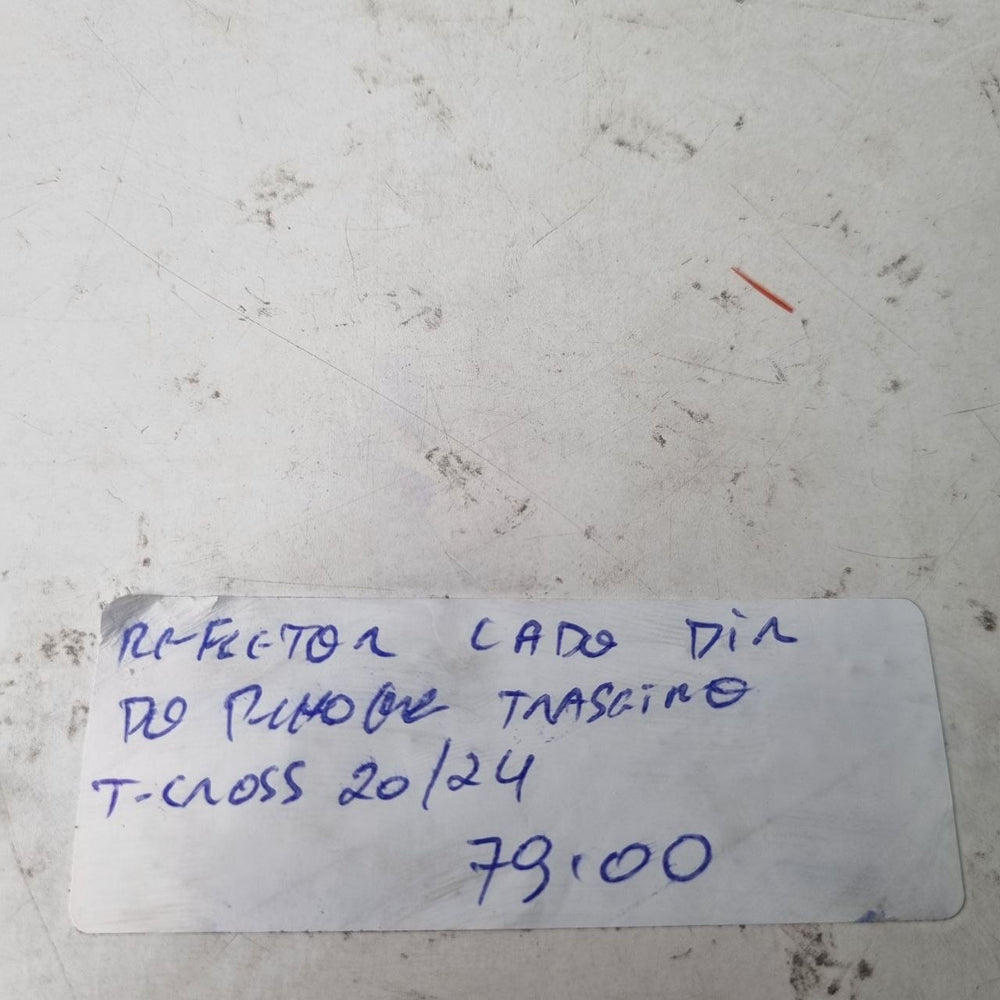 REFLETOR LADO DIR
DO PCHOQUE TRASEIRO
T-CROSS 20/24
79.00